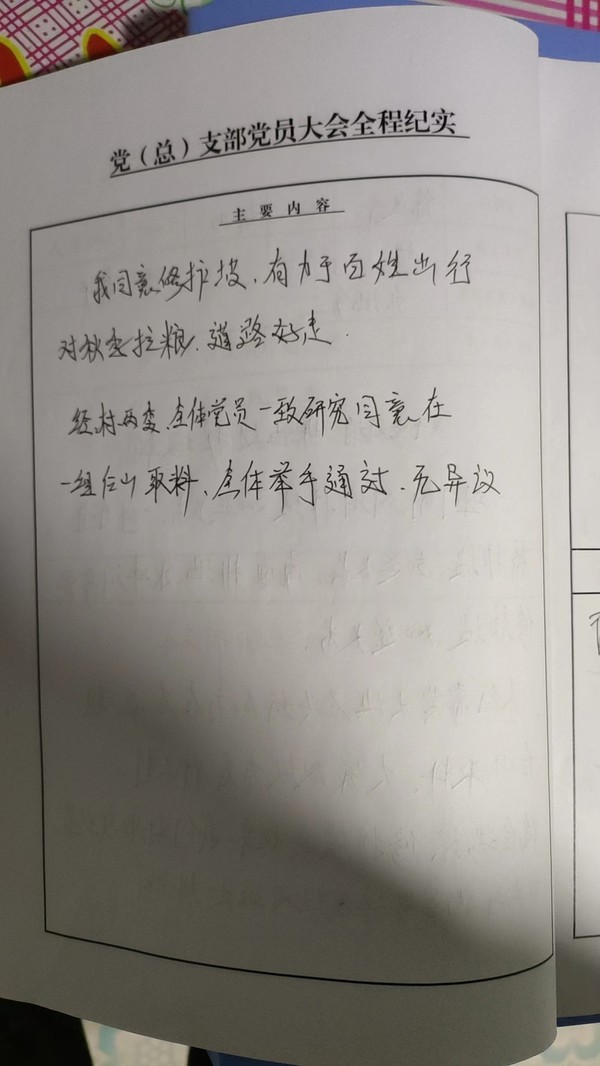 党（总）支部党员大会全程纪实
主要内容
我同意修护坡、有力于百姓出行
对秋季拉粮、道路好走.
经村两委、全体党员一致研究同意在
一组石山取料、全体举手通过、无异议